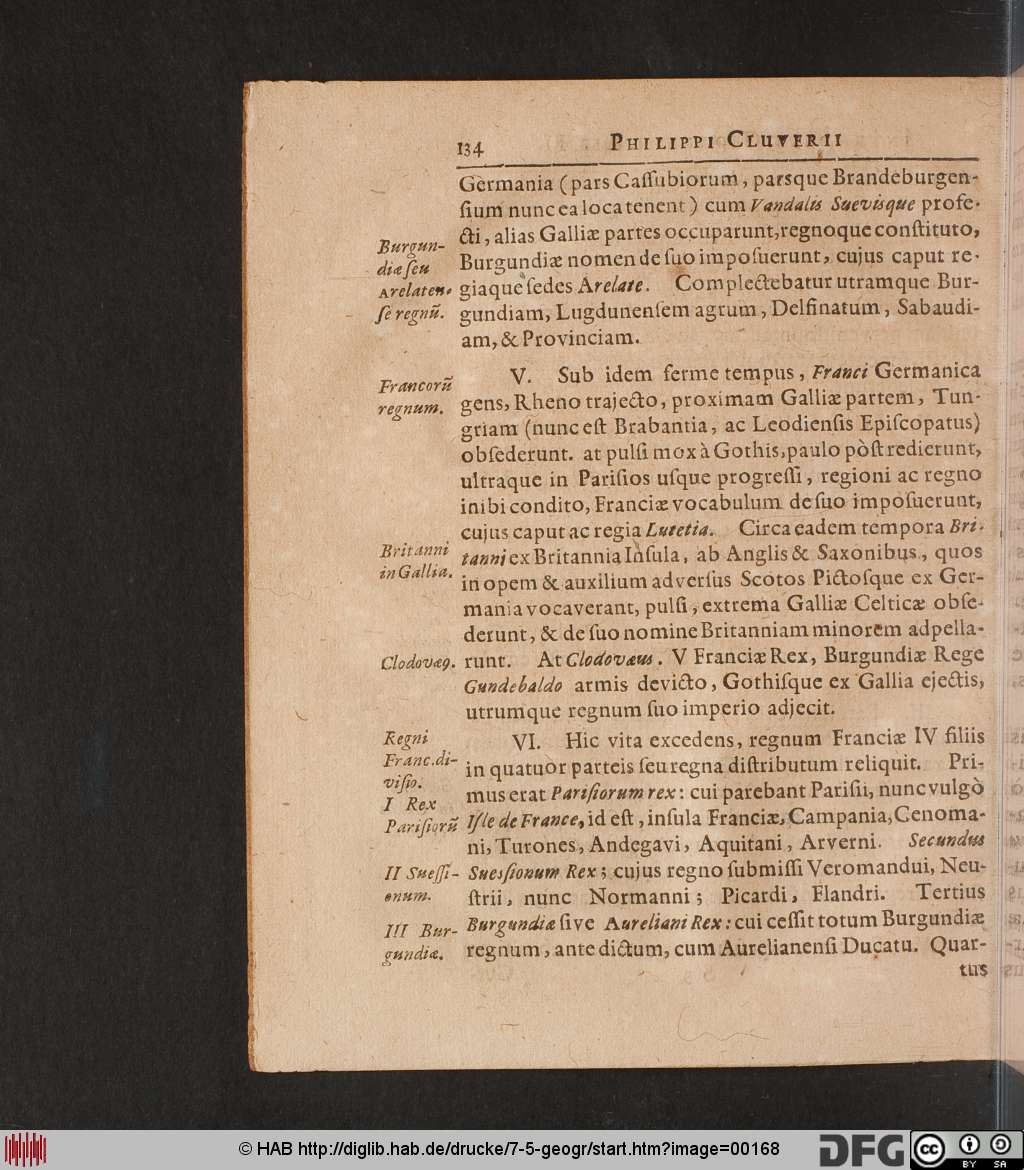 134
PHILIPPI CLUVERII
Germania (pars Caſſubiorum, parsque Brandeburgen-
ſium nunc ea loca tenent) cum Vandalis Suevisque profe-
cti, alias Galliæ partes occuparunt, regnoque conſtituto,
Burgundiæ nomen de ſuo impoſuerunt, cujus caput re-
giaque ſedes Arelate. Complectebatur utramque Bur-
gundiam, Lugdunenſem agrum, Delfinatum, Sabaudi-
am, & Provinciam.
Burgun-
diæ ſeu
Arelaten-
ſe regnũ.
V. Sub idem ferme tempus, Franci Germanica
gens, Rheno trajecto, proximam Galliæ partem, Tun-
griam (nunc eſt Brabantia, ac Leodienſis Epiſcopatus)
obſederunt. at pulſi mox à Gothis, paulo pòſt redierunt,
ultraque in Pariſios uſque progreſſi, regioni ac regno
inibi condito, Franciæ vocabulum de ſuo impoſuerunt,
cujus caput ac regia Lutetia. Circa eadem tempora Bri-
tanni ex Britannia Inſula, ab Anglis & Saxonibus, quos
in opem & auxilium adverſus Scotos Pictoſque ex Ger-
mania vocaverant, pulſi, extrema Galliæ Celticæ obſe-
derunt, & de ſuo nomine Britanniam minorem adpella-
runt. At Clodovæus. V Franciæ Rex, Burgundiæ Rege
Gundebaldo armis devicto, Gothiſque ex Gallia ejectis,
utrumque regnum ſuo imperio adjecit.
Francorũ
regnum.
Britanni
in Gallia.
Clodovæ9.
VI. Hic vita excedens, regnum Franciæ IV filiis
in quatuor parteis ſeu regna diſtributum reliquit. Pri-
mus erat Pariſiorum rex: cui parebant Pariſii, nunc vulgò
Iſle de France, id eſt, inſula Franciæ, Campania, Cenoma-
ni, Turones, Andegavi, Aquitani, Arverni. Secundus
Suesſionum Rex; cujus regno ſubmiſſi Veromandui, Neu-
ſtrii, nunc Normanni; Picardi, Flandri. Tertius
Burgundiæ ſive Aureliani Rex: cui ceſſit totum Burgundiæ
regnum, ante dictum, cum Aurelianenſi Ducatu. Quar-
tus
Regni
Franc. di-
viſio.
I Rex
Pariſiorũ
II Sueſſi-
onum.
III Bur-
gundiæ.
© HAB http://diglib.hab.de/drucke/7-5-geogr/start.htm?image=00168
DFG
cc
BY SA